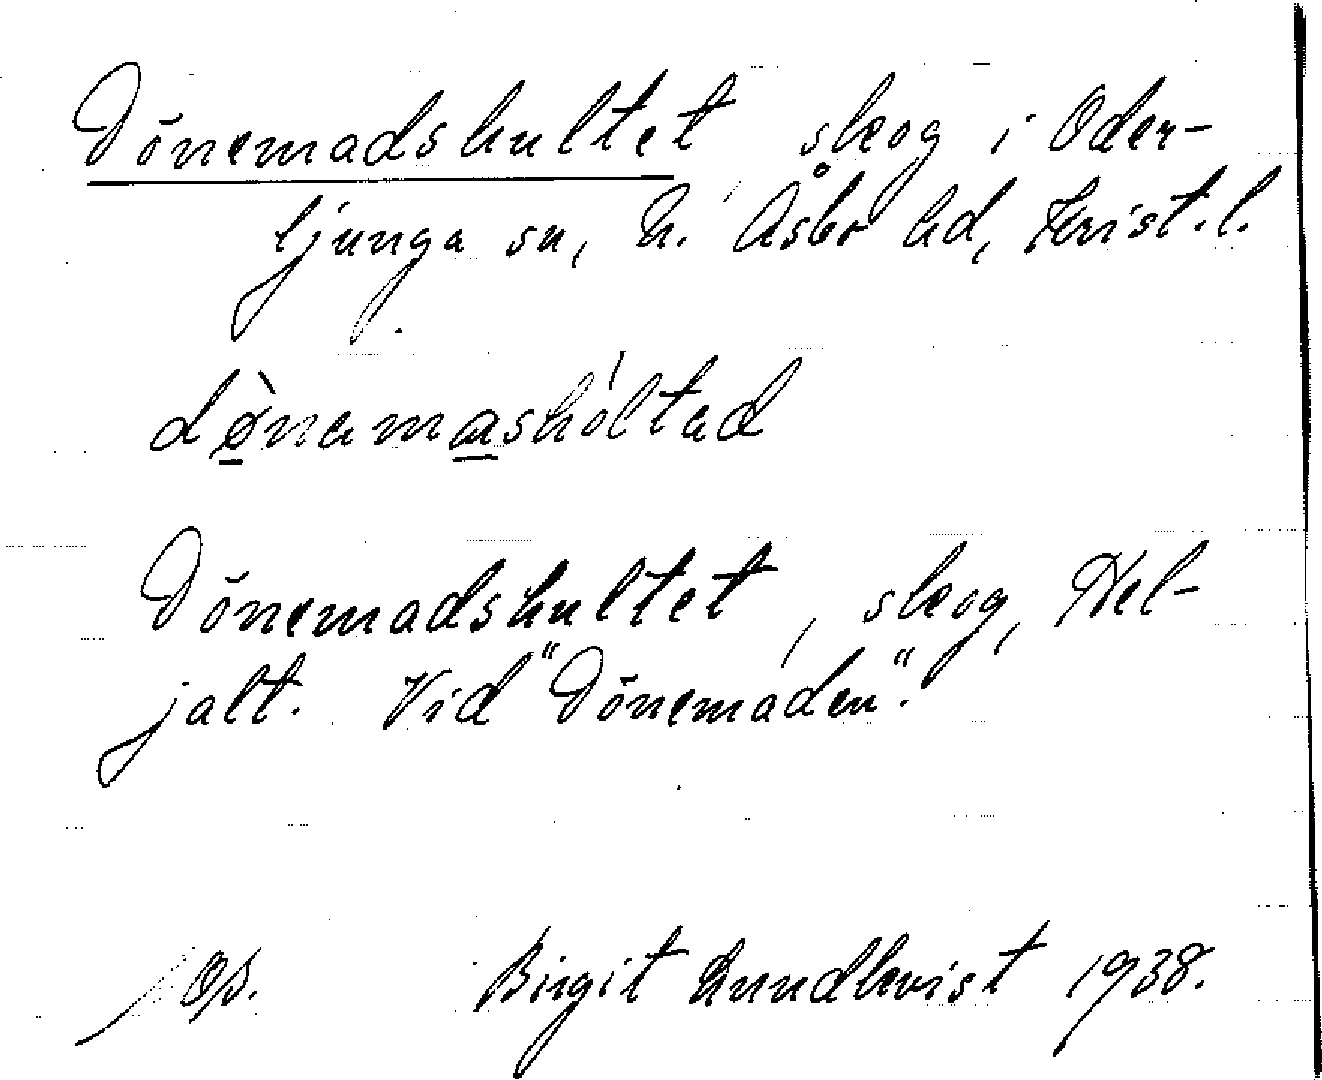 Dönemadshultet skog i Oder-
ljunga sn, N. Åsbo hd, Krist. l.
dø̀namashóltad
Dönemadshultet, skog, Hel-
jalt. Vid "Dönemaden".
Op. Birgit Lundkvist 1938.